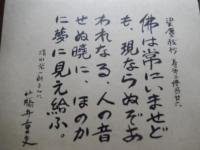 梁塵秘抄
佛は常にいませど
も、現ならぬぞあ
われなる、人の音
せぬ暁に、ほのか
に夢に見え給ふ。